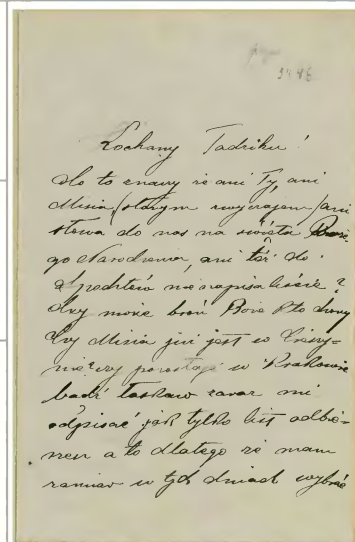 Kochany Tadziku!
Co to znaczy że ani Ty, ani
Misia /starym zwyczajem/ ani
słowa do nas na święta Boże
go Narodzenia, ani też do
nie napisaliście?
Czy może broń Boże kto chory
Czy Misia już jest w
czy pozostaje w Krakowie
bądź łaskaw zaraz mi
odpisać jak tylko list odbie-
rzesz a to dlatego że mam
zamiar w tych dniach wybrać